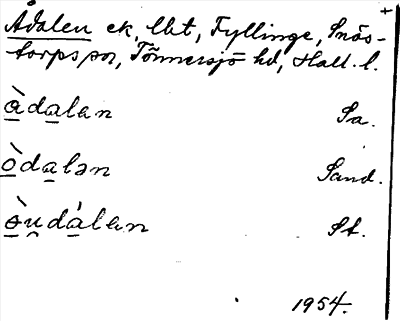 +
Ådalen ek, lbt, Fyllinge, Snös-
torps sn, Tönnersjö hd, Hall. l.
àdalen Sa.
òdalen Sand.
òu̯dálen St.
1954.